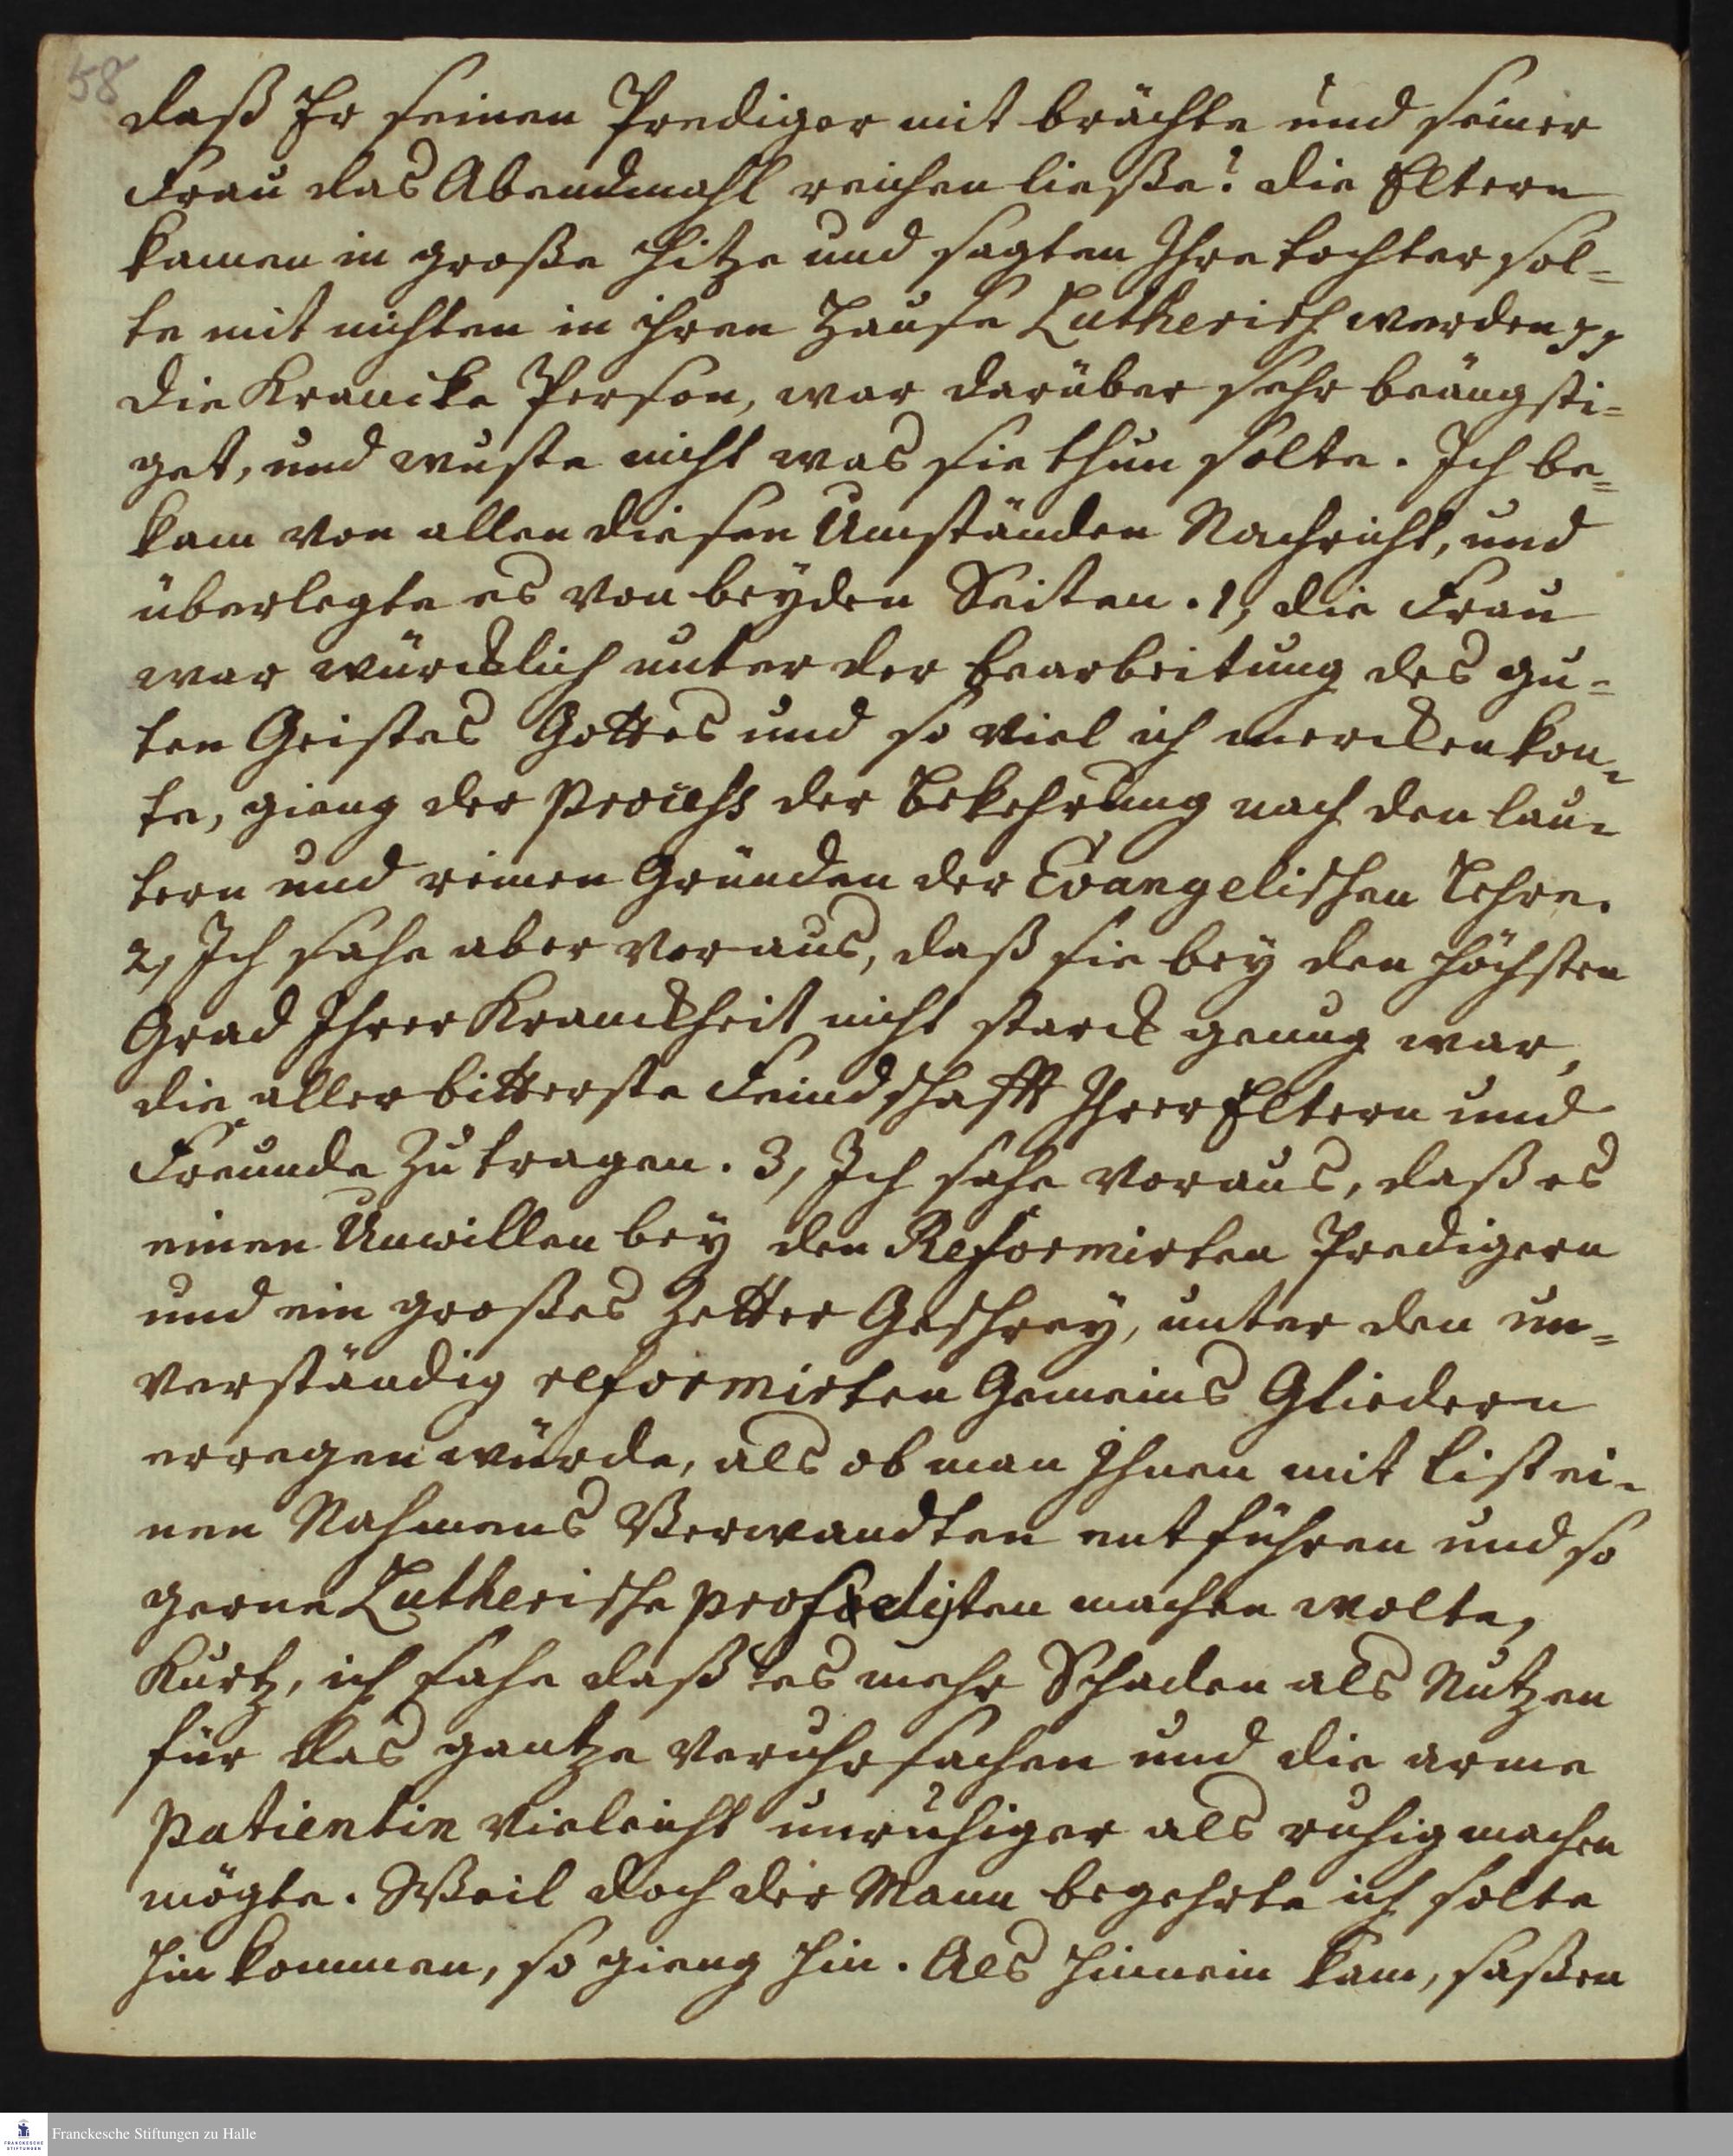 58
daß Er seinen Prediger mit brächte und seiner
Frau das Abendmahl reichen ließe? die Eltern
kamen in große Hitze und sagten Ihre tochter sol=
te mit nichten in ihren Hause Lutherisch werden pp
die Krancke Person, war darüber sehr beängsti=
get, und wuste nicht was sie thun solte. Ich be=
kam von allen diesen Umständen Nachricht, und
überlegte es von beyden Seiten. 1, die Frau
war würcklich unter der bearbeitung des gu=
ten Geistes Gottes und so viel ich mercken kon=
te, gieng der Process der Bekehrung nach den lau=
tern und reinen Gründen der Evangelischen Lehre.
2, Ich sahe aber voraus, daß sie bey den höchsten
Grad Ihrer Kranckheit nicht starck genug war,
die allerbitterste Feindschafft Ihrer Eltern und
Freunde zu tragen. 3, Ich sahe voraus, daß es
einen Unwillen bey den Reformirten Predigern
und ein großes Zetter Geschrey, unter den un=
verständig reformirten Gemeins Gliedern
erregen würde, als ob man Ihnen mit list ei=
nen Nahmens Verwandten entführen und so
gerne Lutherische proselijten machen wolte,
Kurtz, ich sahe daß es mehr Schaden als Nutzen
für das gantze veruhrsachen und die arme
Patientin vieleicht unruhiger als ruhig machen
mögte. Weil doch der Mann begehrte ich solte
hin kommen, so gieng hin. Als hinnein kam, saßen
Franckesche Stiftungen zu Halle
FRANCKESCHE
STIFTUNGEN